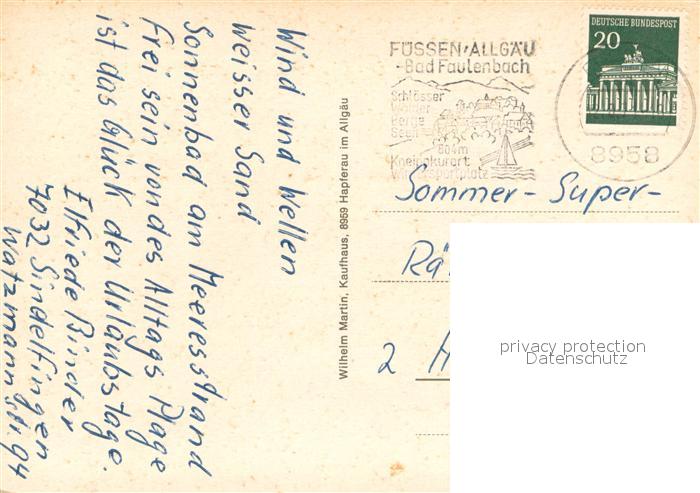 Wind und Wellen
weisser Sand
Sonnenbad am Meeresstrand
frei sein von des Alltags Plage
ist das Glück der Urlaubstage.
Elfriede Binder
7032 Sindelfingen
Watzmannstr. 94
Wilhelm Martin, Kaufhaus, 8959 Hapferau im Allgäu
FÜSSEN/ALLGÄU
-Bad Faulenbach
Schlösser
Berge
Seen
804m
Kneippkurort
Wintersportplatz
8958
DEUTSCHE BUNDESPOST
20
Sommer- Super-
Rä
2 H
privacy protection
Datenschutz